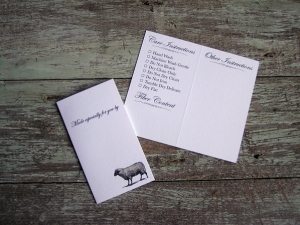 Made especially for you by
Care Instructions
Hand Wash
Machine Wash Gentle
Do Not Bleach
Dry Clean Only
Do Not Dry Clean
Do Not Iron
Tumble Dry Delicate
Dry Flat
Fiber Content
Other Instructions